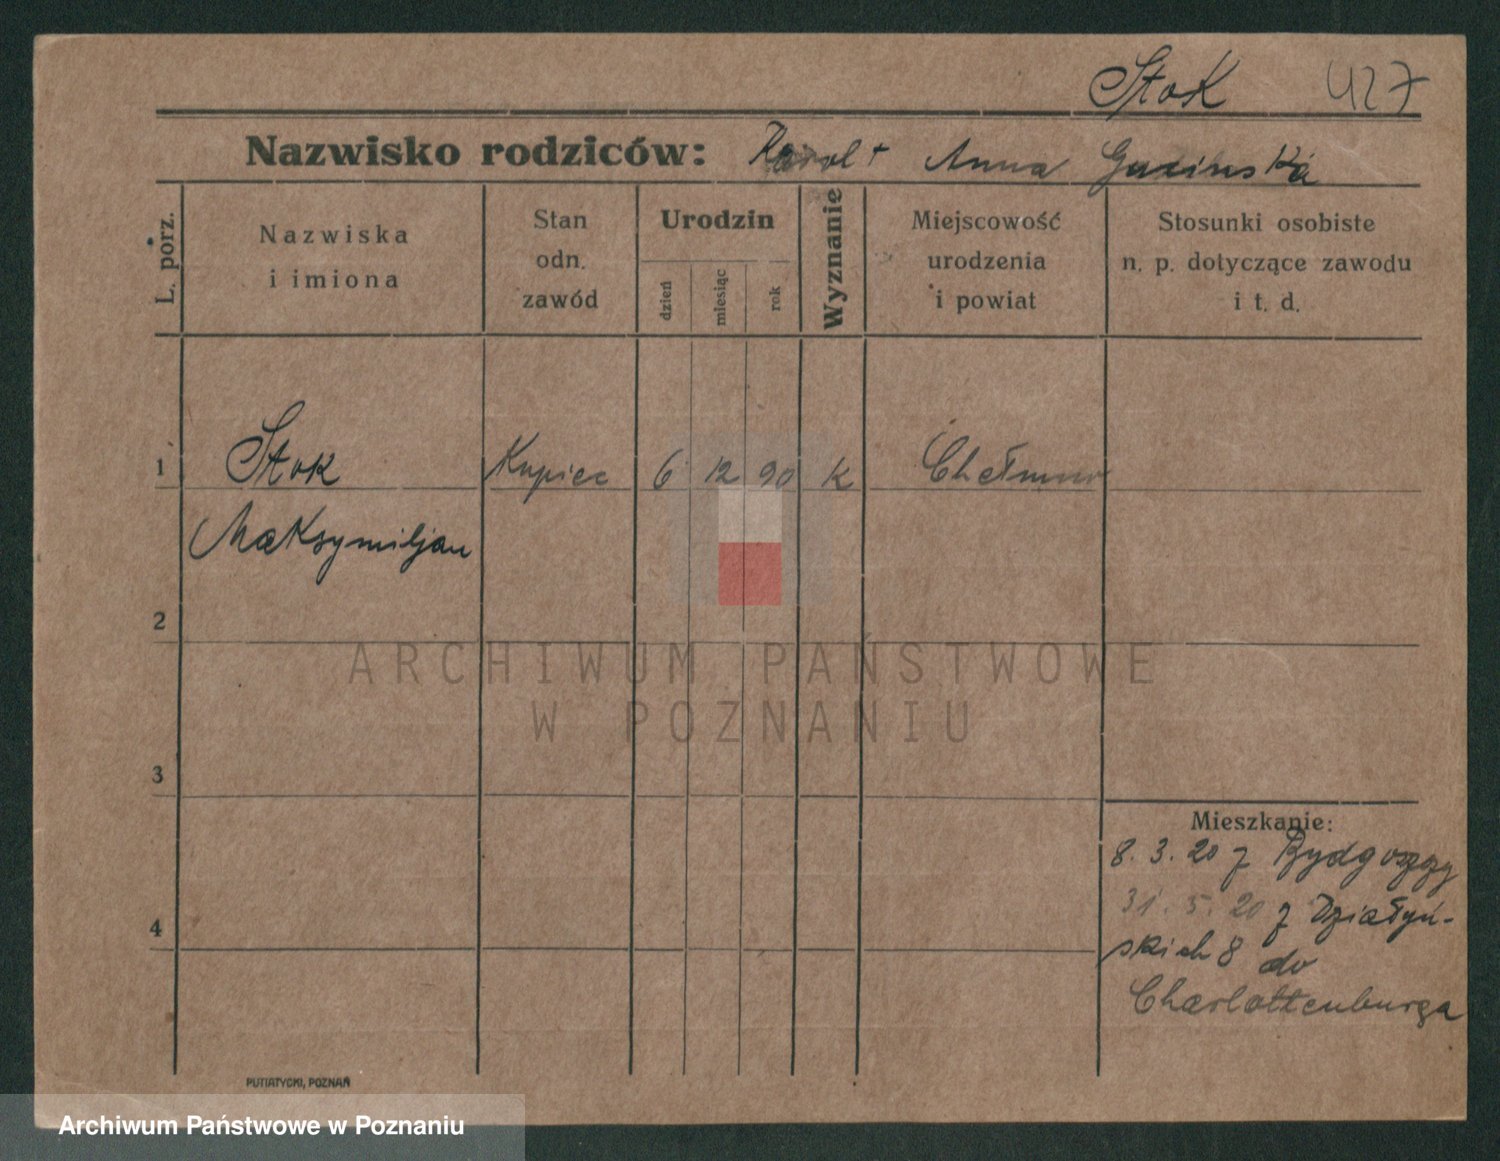 Stok 427
Nazwisko rodziców: Karol + Anna
L. porz.
Nazwiska
i imiona
Stan
odn.
zawód
Urodzin
dzień
miesiąc
rok
Wyznanie
Miejscowość
urodzenia
i powiat
Stosunki osobiste
n. p. dotyczące zawodu
i t. d.
1 Stok Kupiec 6 12 90 K Chełmno
Maksymiljan
2
ARCHIWUM PAŃSTWOWE
W POZNANIU
3
Mieszkanie:
8. 3. 20 z Bydgoszczy
31. 5. 20 z Działyń-
4
skich 8 do
Charlottenburga
PUTIATYCKI, POZNAŃ
Archiwum Państwowe w Poznaniu